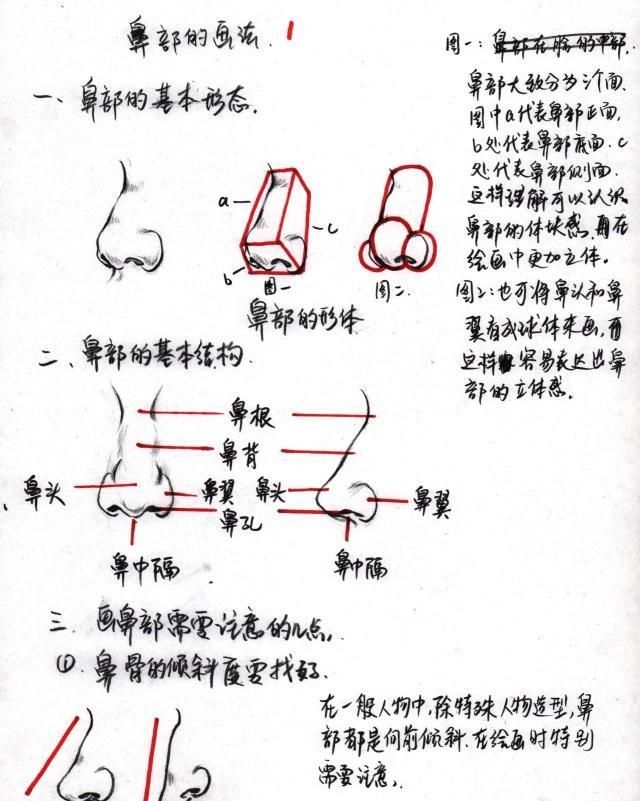 鼻部的画法. 1
一、鼻部的基本形态.
a
b
c
图一
图二.
鼻部的形体
图一: 鼻部在脸的中部.
鼻部大致分为三个面.
图中a代表鼻部正面,
b处代表鼻部底面. c
处代表鼻部侧面.
这样理解可以认识
鼻部的体块感. 再在
绘画中更加立体。
图二: 也可将鼻头和鼻
翼看成球体来画, 而
这样 容易表达出鼻
部的立体感.
二、鼻部的基本结构.
鼻根
鼻背
鼻头
鼻翼
鼻头
鼻翼
鼻孔
鼻中隔
鼻中隔
三. 画鼻部需要注意的几点.
①. 鼻骨的倾斜度要找好.
在一般人物中, 除特殊人物造型, 鼻
部都是向前倾斜. 在绘画时特别
需要注意.